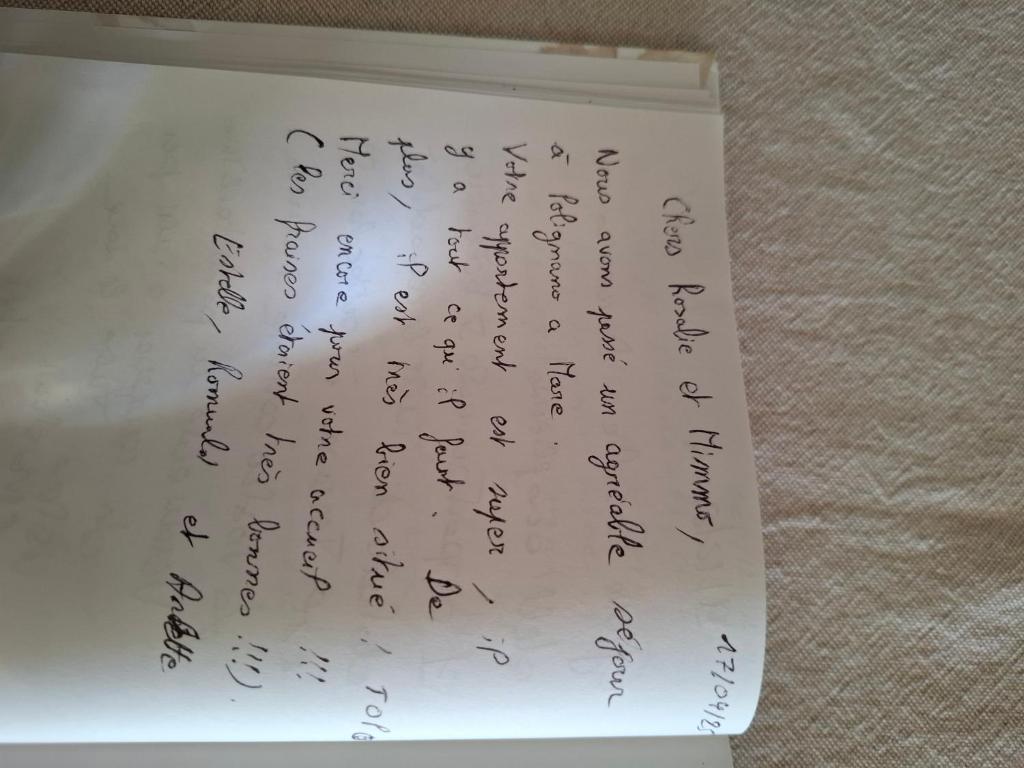 17/04/25
Chers Rosalie et Mimmo,
Nous avons passé un agréable séjour
à Polignano a Mare.
Votre appartement est super, il
y a tout ce qu'il faut. De
plus, il est très bien situé, TOP
Merci encore pour votre accueil !!!
(les fraises étaient très bonnes !!!).
Estelle, Romuald et